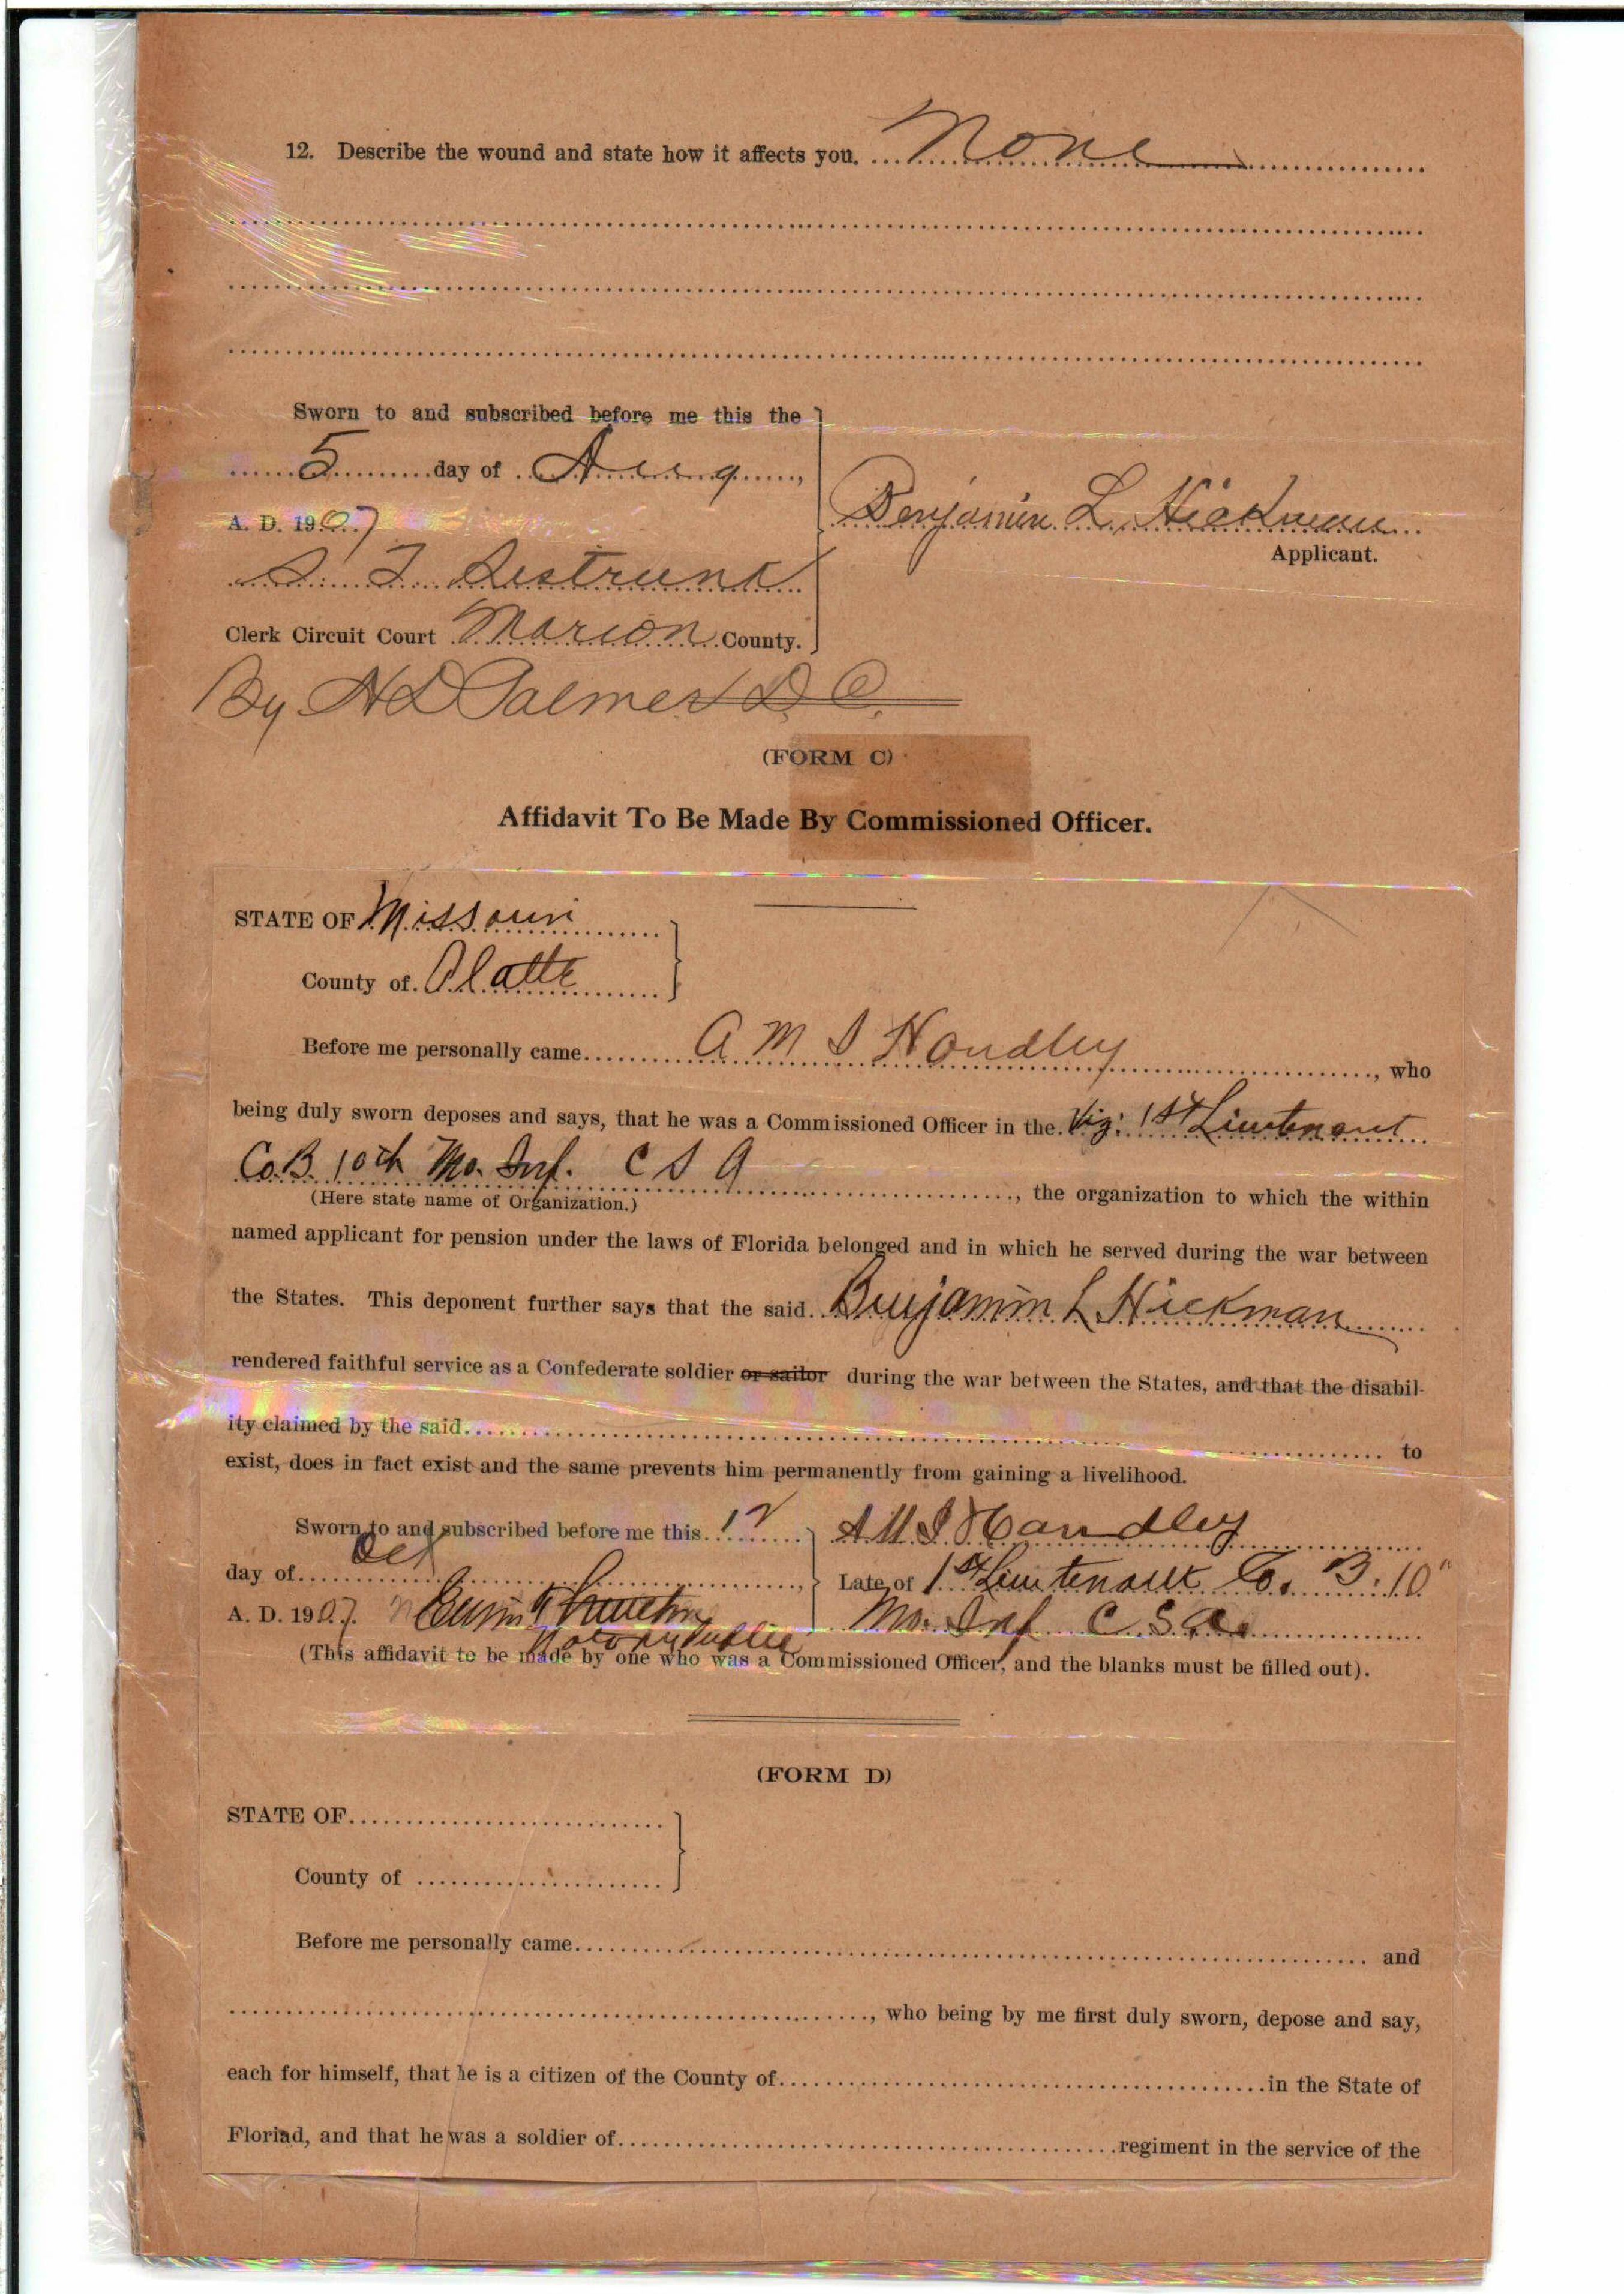 12. Describe the wound and state how it affects you. None
Sworn to and subscribed before me this the
5 day of Aug,
A. D. 1907
Benjamin L. Hickman
Applicant.
S. T. Sistrunk
Clerk Circuit Court Marion County.
By H D Palmer D. C.
(FORM C)
Affidavit To Be Made By Commissioned Officer.
STATE OF Missouri
County of Platte
Before me personally came A M S Handley, who
being duly sworn deposes and says, that he was a Commissioned Officer in the Viz: 1st Lieutenant
Co. B. 10th Mo. Inf. C S A
(Here state name of Organization.) , the organization to which the within
named applicant for pension under the laws of Florida belonged and in which he served during the war between
the States. This deponent further says that the said Benjamin L Hickman
rendered faithful service as a Confederate soldier or sailor during the war between the States, and that the disabil-
ity claimed by the said to
exist, does in fact exist and the same prevents him permanently from gaining a livelihood.
Sworn to and subscribed before me this 12
A M S Handley
day of Oct,
Late of 1st Lieutenant Co. B. 10"
A. D. 1907.
Mo. Inf C. S. A.
Notary Public
(This affidavit to be made by one who was a Commissioned Officer, and the blanks must be filled out).
(FORM D)
STATE OF
County of
Before me personally came and
, who being by me first duly sworn, depose and say,
each for himself, that he is a citizen of the County of in the State of
Floriad, and that he was a soldier of regiment in the service of the